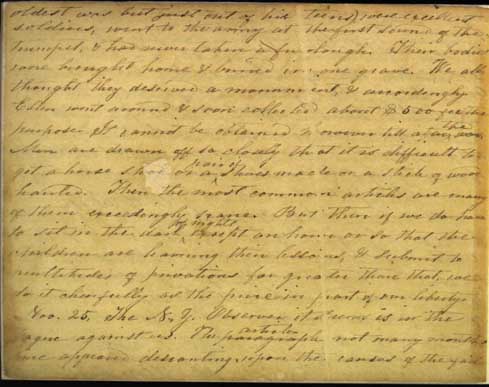 oldest was but just out of his teens) were excellent
soldiers, went to the army at the first sound of the
trumpet, & had never taken a furlough. Their bodies
were brought home & buried in one grave. We all
thought they deserved a monument, & accordingly
went around & soon collected about $500 for the
purpose. It cannot be obtained however till after the war.
Men are drawn off so closely that it is difficult to
get a horse shod or a pair of shoes made or a stick of wood
hauled. Then the most common articles are many
of them exceedingly scarce. But then if we do have
to sit in the dark of nights except an hour or so that the
children are learning their lessons, & submit to
multitudes of privations far greater than that, we
do it cheerfully as the price in part of our liberty.
Nov. 25. The N. Y. Observer it seems is in the
league against us. The articles paragraph not many months
since appeared descanting upon the causes of the